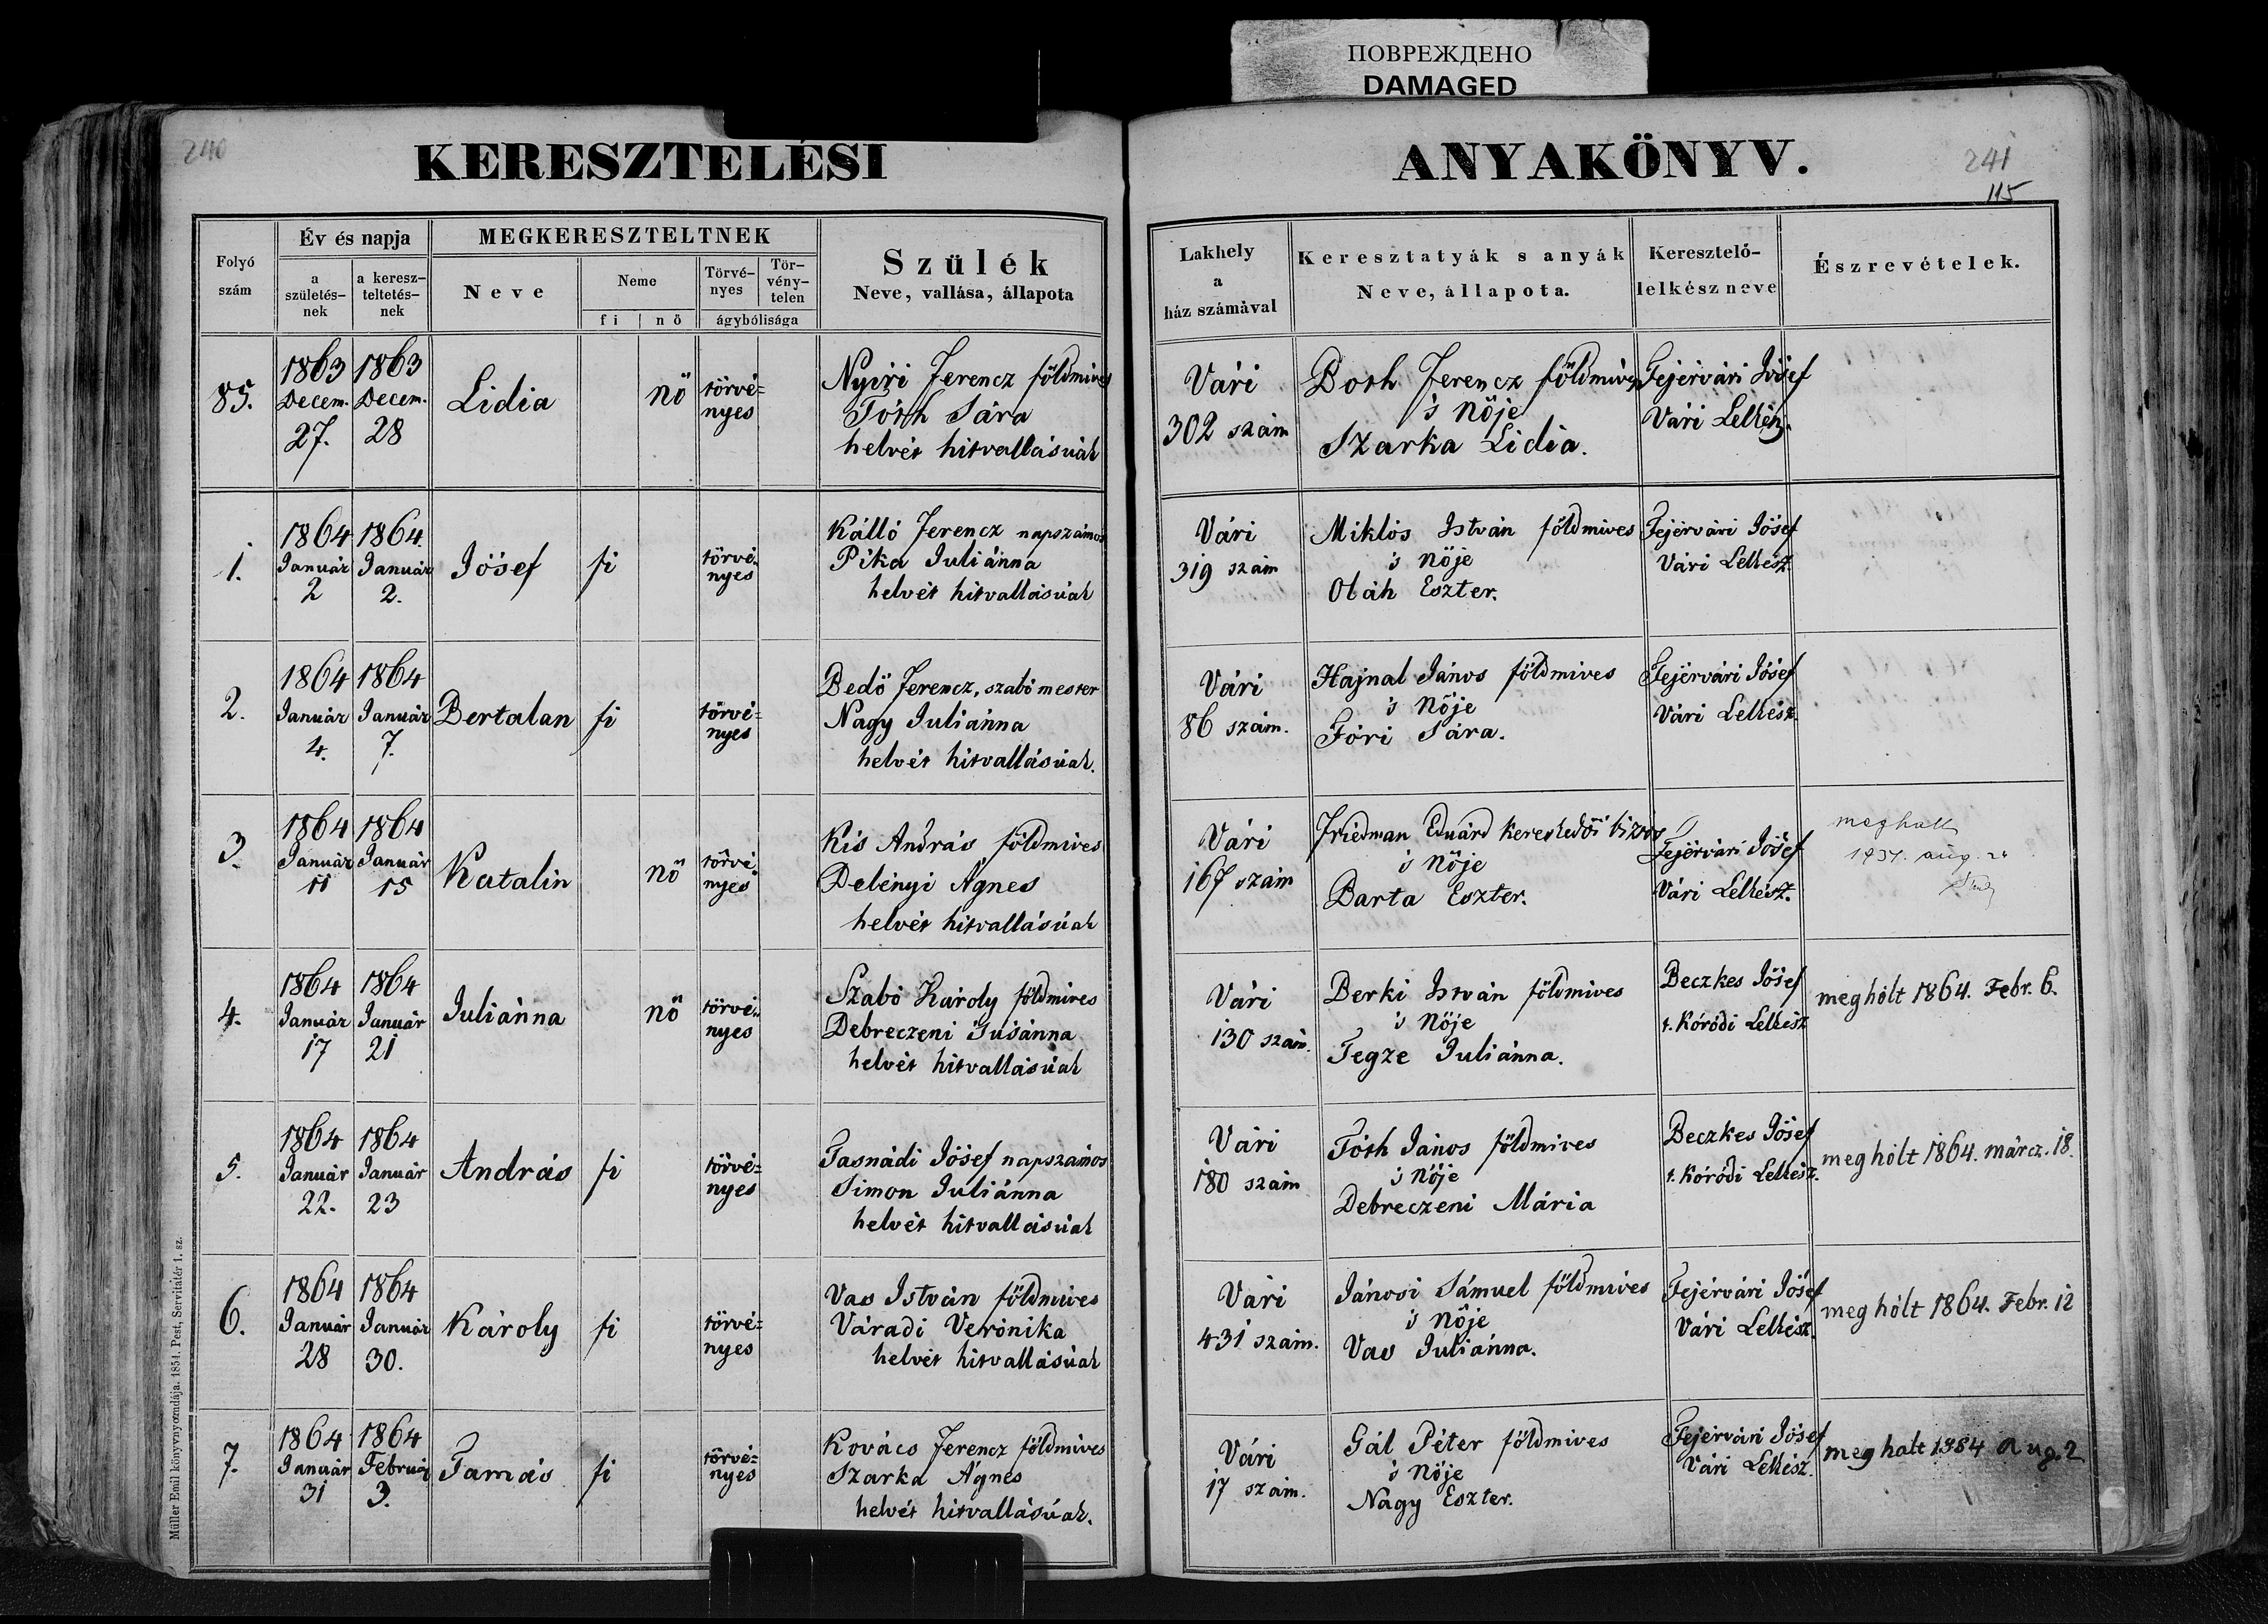 ПОВРЕЖДЕНО
DAMAGED
240
KERESZTELÉSI
ANYAKÖNYV.
241
115
Folyó szám
Év és napja
a születésnek
a kereszteltetésnek
MEGKERESZTELTNEK
Neve
Neme
fi
nő
Törvényes
Törvénytelen
ágybólisága
Szülék
Neve, vallása, állapota
Lakhely
a
ház számával
Keresztatyák s anyák
Neve, állapota.
Keresztelő-
lelkész neve
Észrevételek.
85.
1863 Decem. 27.
1863 Decem. 28
Lidia
nő
törvé=
nyes
Nyiri Ferencz földmives
Tóth Sára
helvét hitvallásúak
Vári
302 szám
Both Ferencz földmives
's Nője
Szarka Lidia.
Fejérvári Jósef
Vári Lelkész.
1.
1864 Január 2
1864. Január 2.
Jósef
fi
törvé=
nyes
Kálló Ferencz napszámos
Pika Juliánna
helvét hitvallásúak
Vári
319 szám
Miklós István földmives
's Nője
Oláh Eszter.
Fejérvári Jósef
Vári Lelkész.
2.
1864 Január 4.
1864 Január 7.
Bertalan
fi
törvé=
nyes
Bedő Ferencz, szabó mester
Nagy Juliánna
helvét hitvallásúak.
Vári
86 szám.
Hajnal János földmives
's Nője
Fóri Sára.
Fejérvári Jósef
Vári Lelkész.
3.
1864 Január 11
1864 Január 15
Katalin
nő
törvé=
nyes
Kis András földmives
Delényi Ágnes
helvét hitvallásúak
Vári
167 szám
Friedman Eduárd kereskedői
's Nője
Barta Eszter.
Fejérvári Jósef
Vári Lelkész.
meghalt
aug.
4.
1864 Január 17
1864 Január 21
Juliánna
nő
törvé=
nyes
Szabó Károly földmives
Debreczeni Susánna
helvét hitvallásúak
Vári
130 szám.
Berki István földmives
's Nője
Tegze Juliánna.
Beczkes Jósef
t. Kóródi Lelkész
meghólt 1864. Febr. 6.
5.
1864 Január 22.
1864 Január 23
András
fi
törvé=
nyes
Tasnádi Jósef napszámos
Simon Juliánna
helvét hitvallásúak
Vári
180 szám
Tóth János földmives
's Nője
Debreczeni Mária
Beczkes Jósef
t. Kóródi Lelkész.
meghólt 1864. márcz. 18.
6.
1864 Január 28
1864 Január 30.
Károly
fi
törvé=
nyes
Vas István földmives
Váradi Verónika
helvét hitvallásúak
Vári
431 szám.
Jánosi Sámuel földmives
's Nője
Vas Juliánna.
Fejérvári Jósef
Vári Lelkész.
meghólt 1864. Febr. 12
7.
1864 Január 31
1864 Február 3.
Tamás
fi
törvé=
nyes
Kovács Ferencz földmives
Szarka Ágnes
helvét hitvallásúak.
Vári
17 szám.
Gál Péter földmives
's Nője
Nagy Eszter.
Fejérvári Jósef
Vári Lelkész.
meghalt aug. 2
Müller Emil könyvnyomdája. 1854. Pest, Servitatér 1. sz.